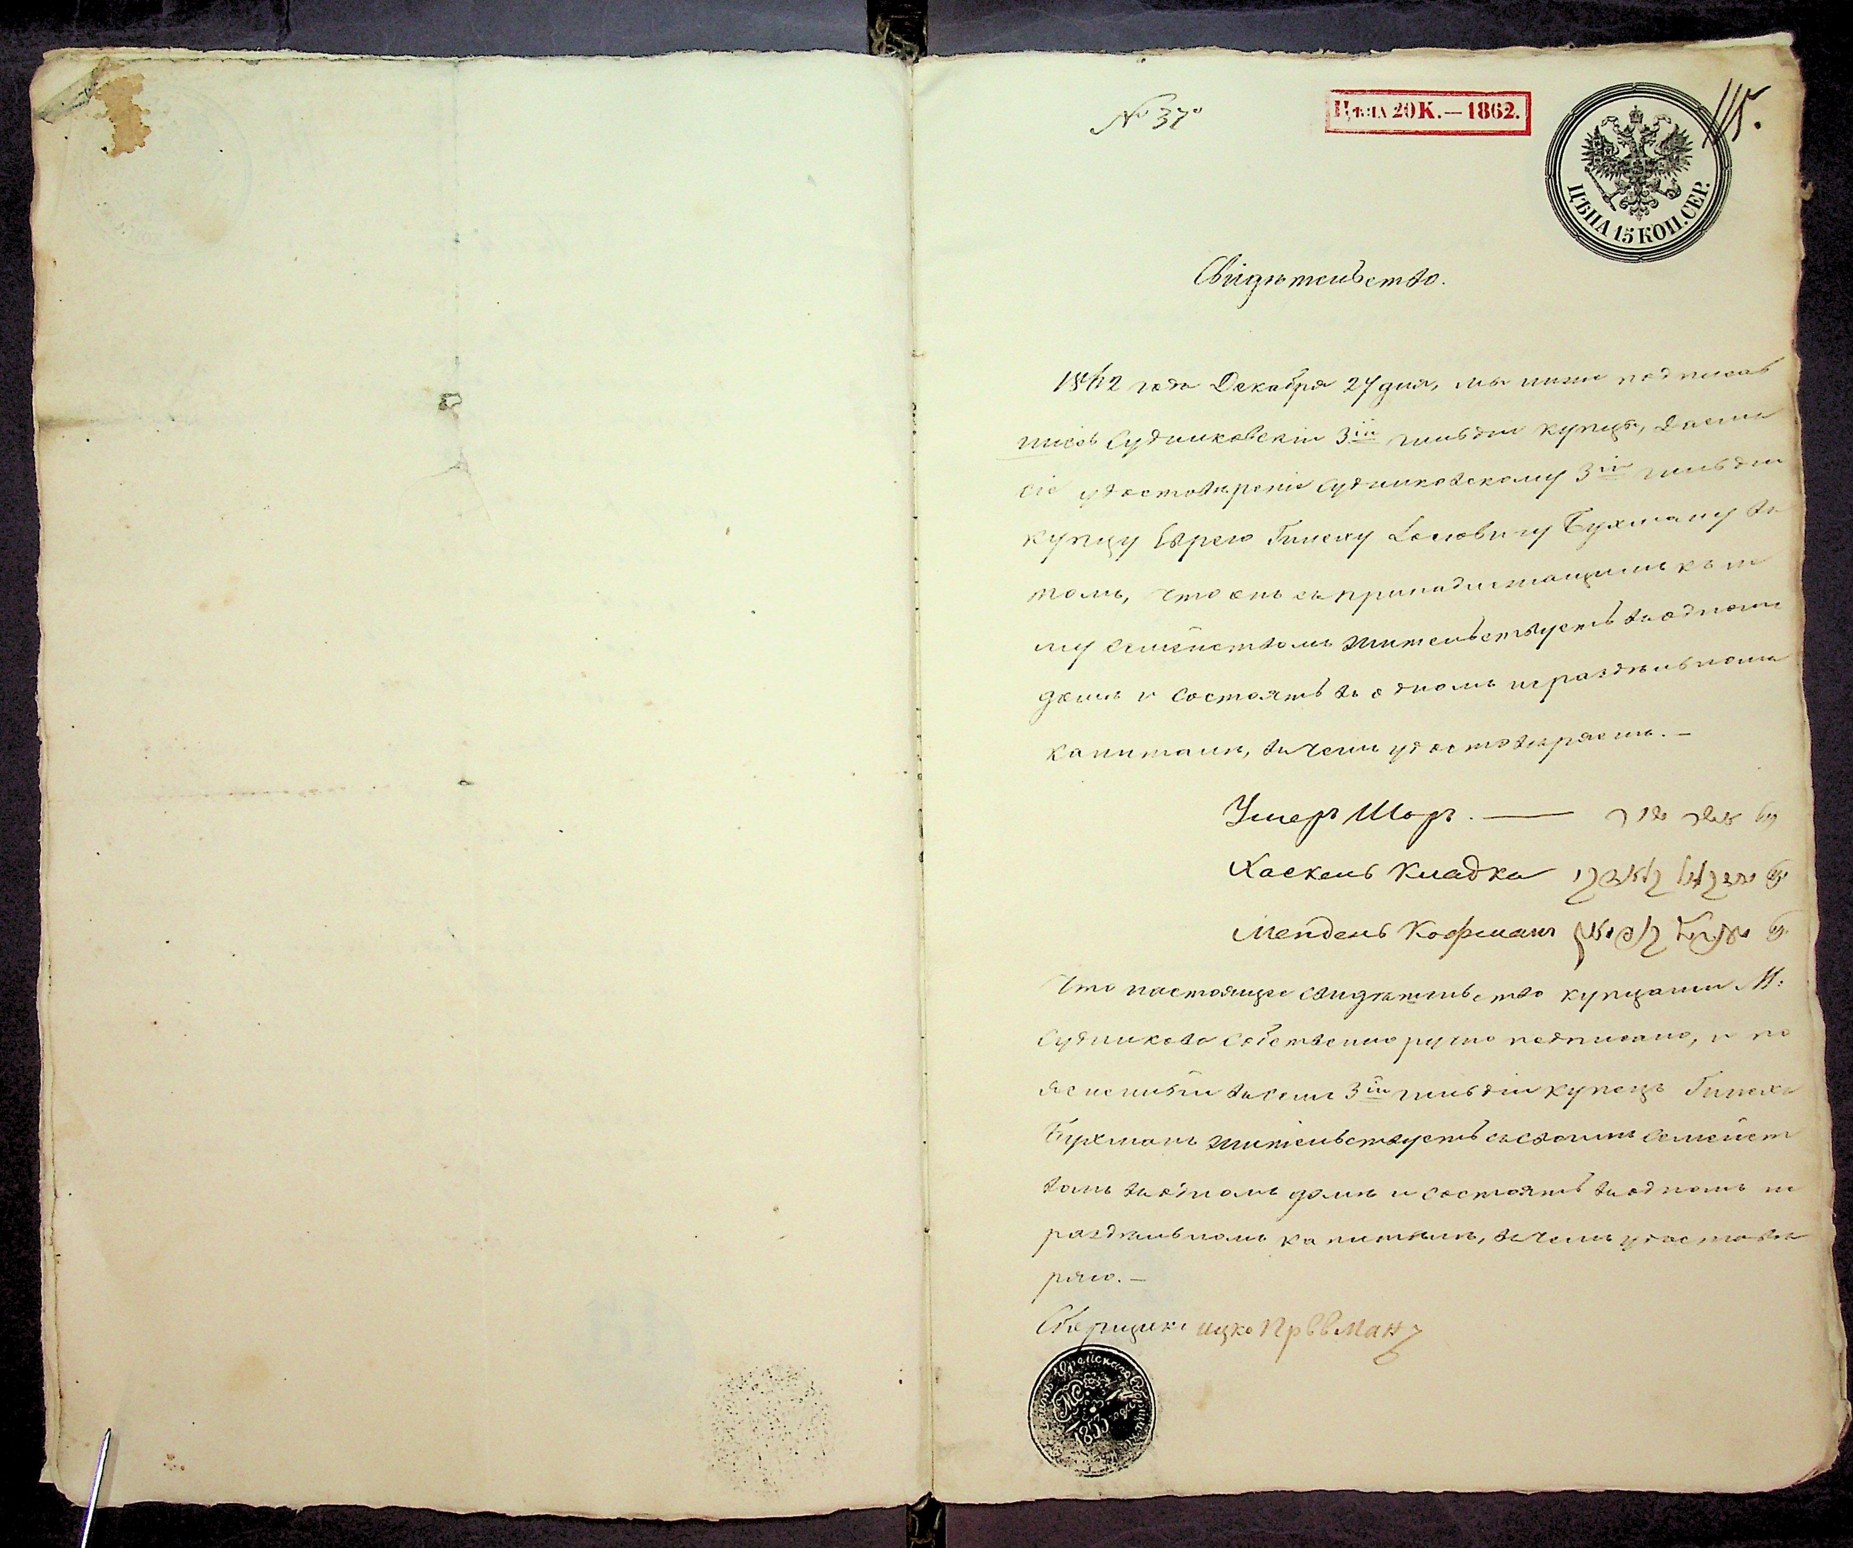 № 37
ЦѢНА 20 К. — 1862.
115.
ЦѢНА 15 КОП. СЕР.
Свидѣтельство.
1862 года Декабря 24 дня, мы ниже подписав
шіесь Судилковскіи 3ій гильдіи купцы, даемъ
сіе удостовѣреніе Судилковскому 3ій гильдіи
купцу Еврею Бухману въ
томъ, что онъ съ принадлежащимъ къ не
му семействомъ жительствуетъ въ одномъ
домѣ и состоятъ въ одномъ нераздѣльномъ
капиталѣ, въ чемъ удостовѣряемъ. —
Ушеръ Шоръ. —
Хаскель Кладко
Мендель Кофманъ
Что настоящее свидѣтельство купцами М:
Судилкова собственно ручно подписано, и по
ясненный въ семъ 3ій гильдіи купецъ
Бухманъ жительствуетъ съ своимъ семейст
вомъ въ одномъ домѣ и состоятъ въ одномъ не
раздѣльномъ капиталѣ, въ чемъ удостовѣ
ряю. —
Сборщикъ ицко
1853